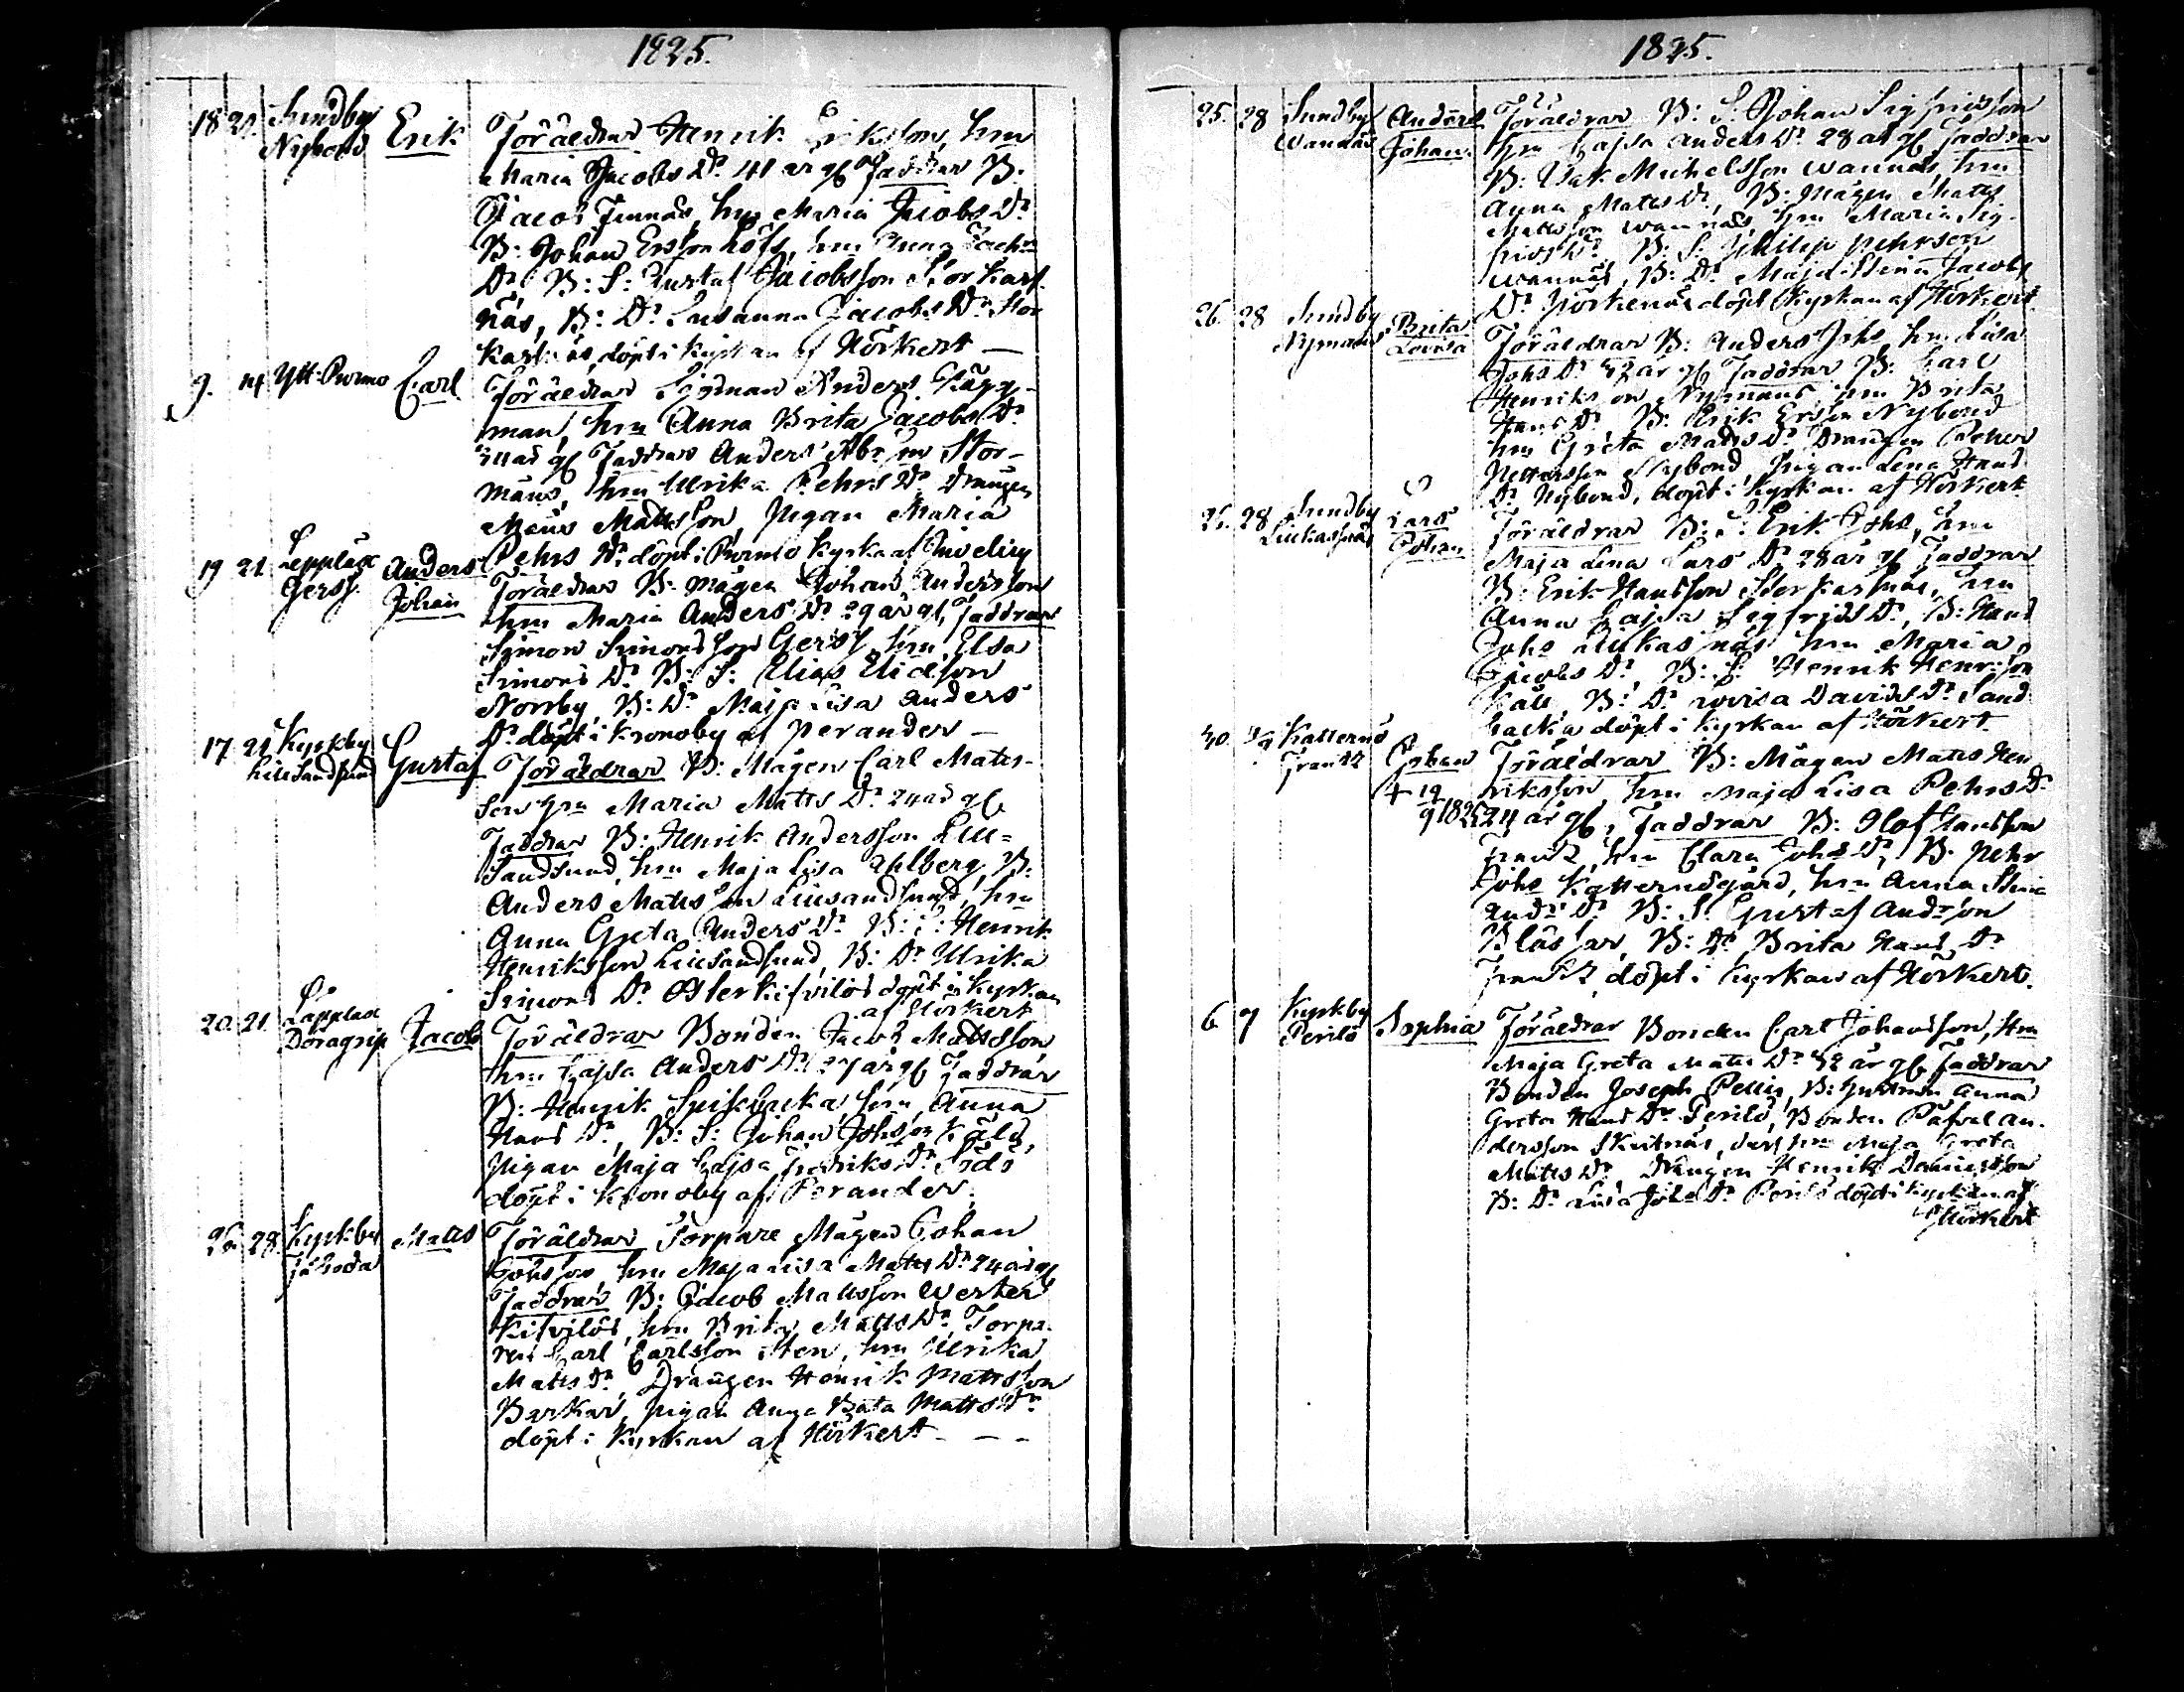 1825.
18 21. Sundby Erik Föräldrar Henrik Eriksson, hru
Nybond
Maria Jacobs Dr 41 år gl Faddrar B:
Jacob Finnäs, hru Maria Jacobs Dr
B: Johan Ersson Löfs, hru Anna Zachs
Dr B: S: Gustaf Jacobsson Storkars
näs, B: Dr Susanna Jacobs Dr Stor
karsnäs, döpt i Kyrkan af Hörkert —
9. 14 Ytt. Purmo Carl Föräldrar Anders Hägg-
man, hru Anna Brita Jacobs Dr
år gl Faddrar Anders Abrsson Stor-
måns, hru Ulrika Pehrs Dr Drängen
Matts Mattsson, Pigan Maria
Pehrs Dr döpt i Purmo Kyrka af
19 21 Lepplax Anders Johan Föräldrar B: Mågen Johan Andersson
Gers
hru Maria Anders Dr 29 år gl, Faddrar
Simon Simonsson Gers, hru Elsa
Simons Dr B: S: Elias Elidsson
Norrby, B: Dr Maja Lisa Anders
Dr döpt i Kronoby af Perander —
17 21 Kyrkby Gustaf Föräldrar B: Mågen Carl Mats-
Lillsandsund
son hru Maria Matts Dr 24 år gl
Faddrar B: Henrik Andersson Lill=
sandsund, hru Maja Lisa Ahlberg, B:
Anders Mattsson Lillsandsund, hru
Anna Greta Anders Dr B: S: Henrik
Henriksson Lillsandsund, B: Dr Ulrika
Simons Dr Österkifvilös döpt i Kyrkan
af Hörkert
20. 21. Lepplax Jacob Föräldrar Bonden Jacob Mattsson
Döragrip
hru Cajsa Anders Dr 27 år gl Faddrar
B: Henrik Spikbacka, hru Anna
Hans Dr, B: S: Johan Johsson Käld,
Pigan Maja Cajsa Fredriks Dr Sådö
döpt i Kronoby af Perander.
26. 28. Kyrkby Matts Föräldrar Torpare Mågen Johan
Johsson, hru Maja Lisa Matts Dr 24 år gl
Faddrar B: Jacob Mattsson Wester
Kifvilös, hru Brita Matts Dr, Torpa-
ren Carl Carlsson Sten, hru Ulrika
Matts Dr, Drängen Henrik Mattsson
Barkar, Pigan Anna Brita Matts Dr
döpt i Kyrkan af Hörkert - - -
1825.
25. 28 Sundby Anders Johan. Föräldrar B: S. Johan Sigfrisson
Wannäs
hru Cajsa Anders Dr 28 år gl Faddrar
B: Isak Michelsson Wannäs, hru
Anna Matts Dr, B: Mågen Matts
Mattsson Wannäs hru Maria Sig-
frids Dr, B: S: Philip Pehrson
Wannäs, B: Dr Maja Stina Jacobs
Dr döpt i Kyrkan af Hörkert.
26. 28 Sundby Brita Lovisa Föräldrar B: Anders Johs, hru Lisa
Nymans
Johs Dr 32 år gl Faddrar B: Carl
Henriksson Nymans, hru Brita
Hans Dr B: Erik Ersson Nybond
hru Greta Matts Dr Drängen Peher
Pettersson Nybond, Pigan Lena Hans
Dr Nybond, döpt i Kyrkan af Hörkert
25. 28 Sundby Lars Johan Föräldrar B: S: Erik Johs, hru
Luckasnäs
Maja Lena Lars Dr 28 år gl Faddrar
B: Erik Hansson Storkarsnäs, hru
Anna Cajsa Sigfrids Dr, B: Hans
Johs Lukasnäs hru Maria
Jacobs Dr, B: S: Henrik Henrsson
Käll, B: Dr Lovisa Davids Dr Sand
backa döpt i Kyrkan af Hörkert.
30 Katternö Johan Föräldrar B: Mågen Matts Hen
Frantz
† 19/9 1825
riksson hru Maja Lisa Pehrs Dr
24 år gl, Faddrar B: Olof Hansson
Frantz, hru Clara Johs Dr, B. Pehr
Johs Katternögård, hru Anna Stina
Ands Dr B: S: Gustaf Andsson
Bläs̈ar, B: Dr Brita Hans Dr
Frantz döpt i Kyrkan af Hörkert.
6 7 Kyrkby Sophia Föräldrar Bonden Carl Johansson, Hru
Perilö
Maja Greta Matts Dr 32 år gl Faddrar
Bonden Joseph Pellis, B: Hustrun Anna
Greta Hans Dr Perilö, Bonden Påfval An-
dersson Skutnäs, dess hru Maja Greta
Matts Dr Drängen Henrik Danielsson
B: Dr Lisa Johs Dr Perilö döpt i Kyrkan af
Hörkert